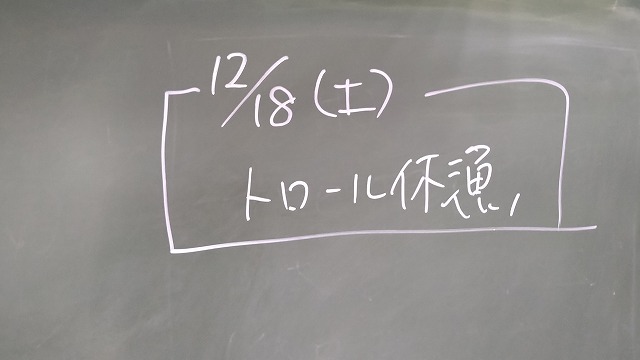 12/18(土)
トロール休漁,